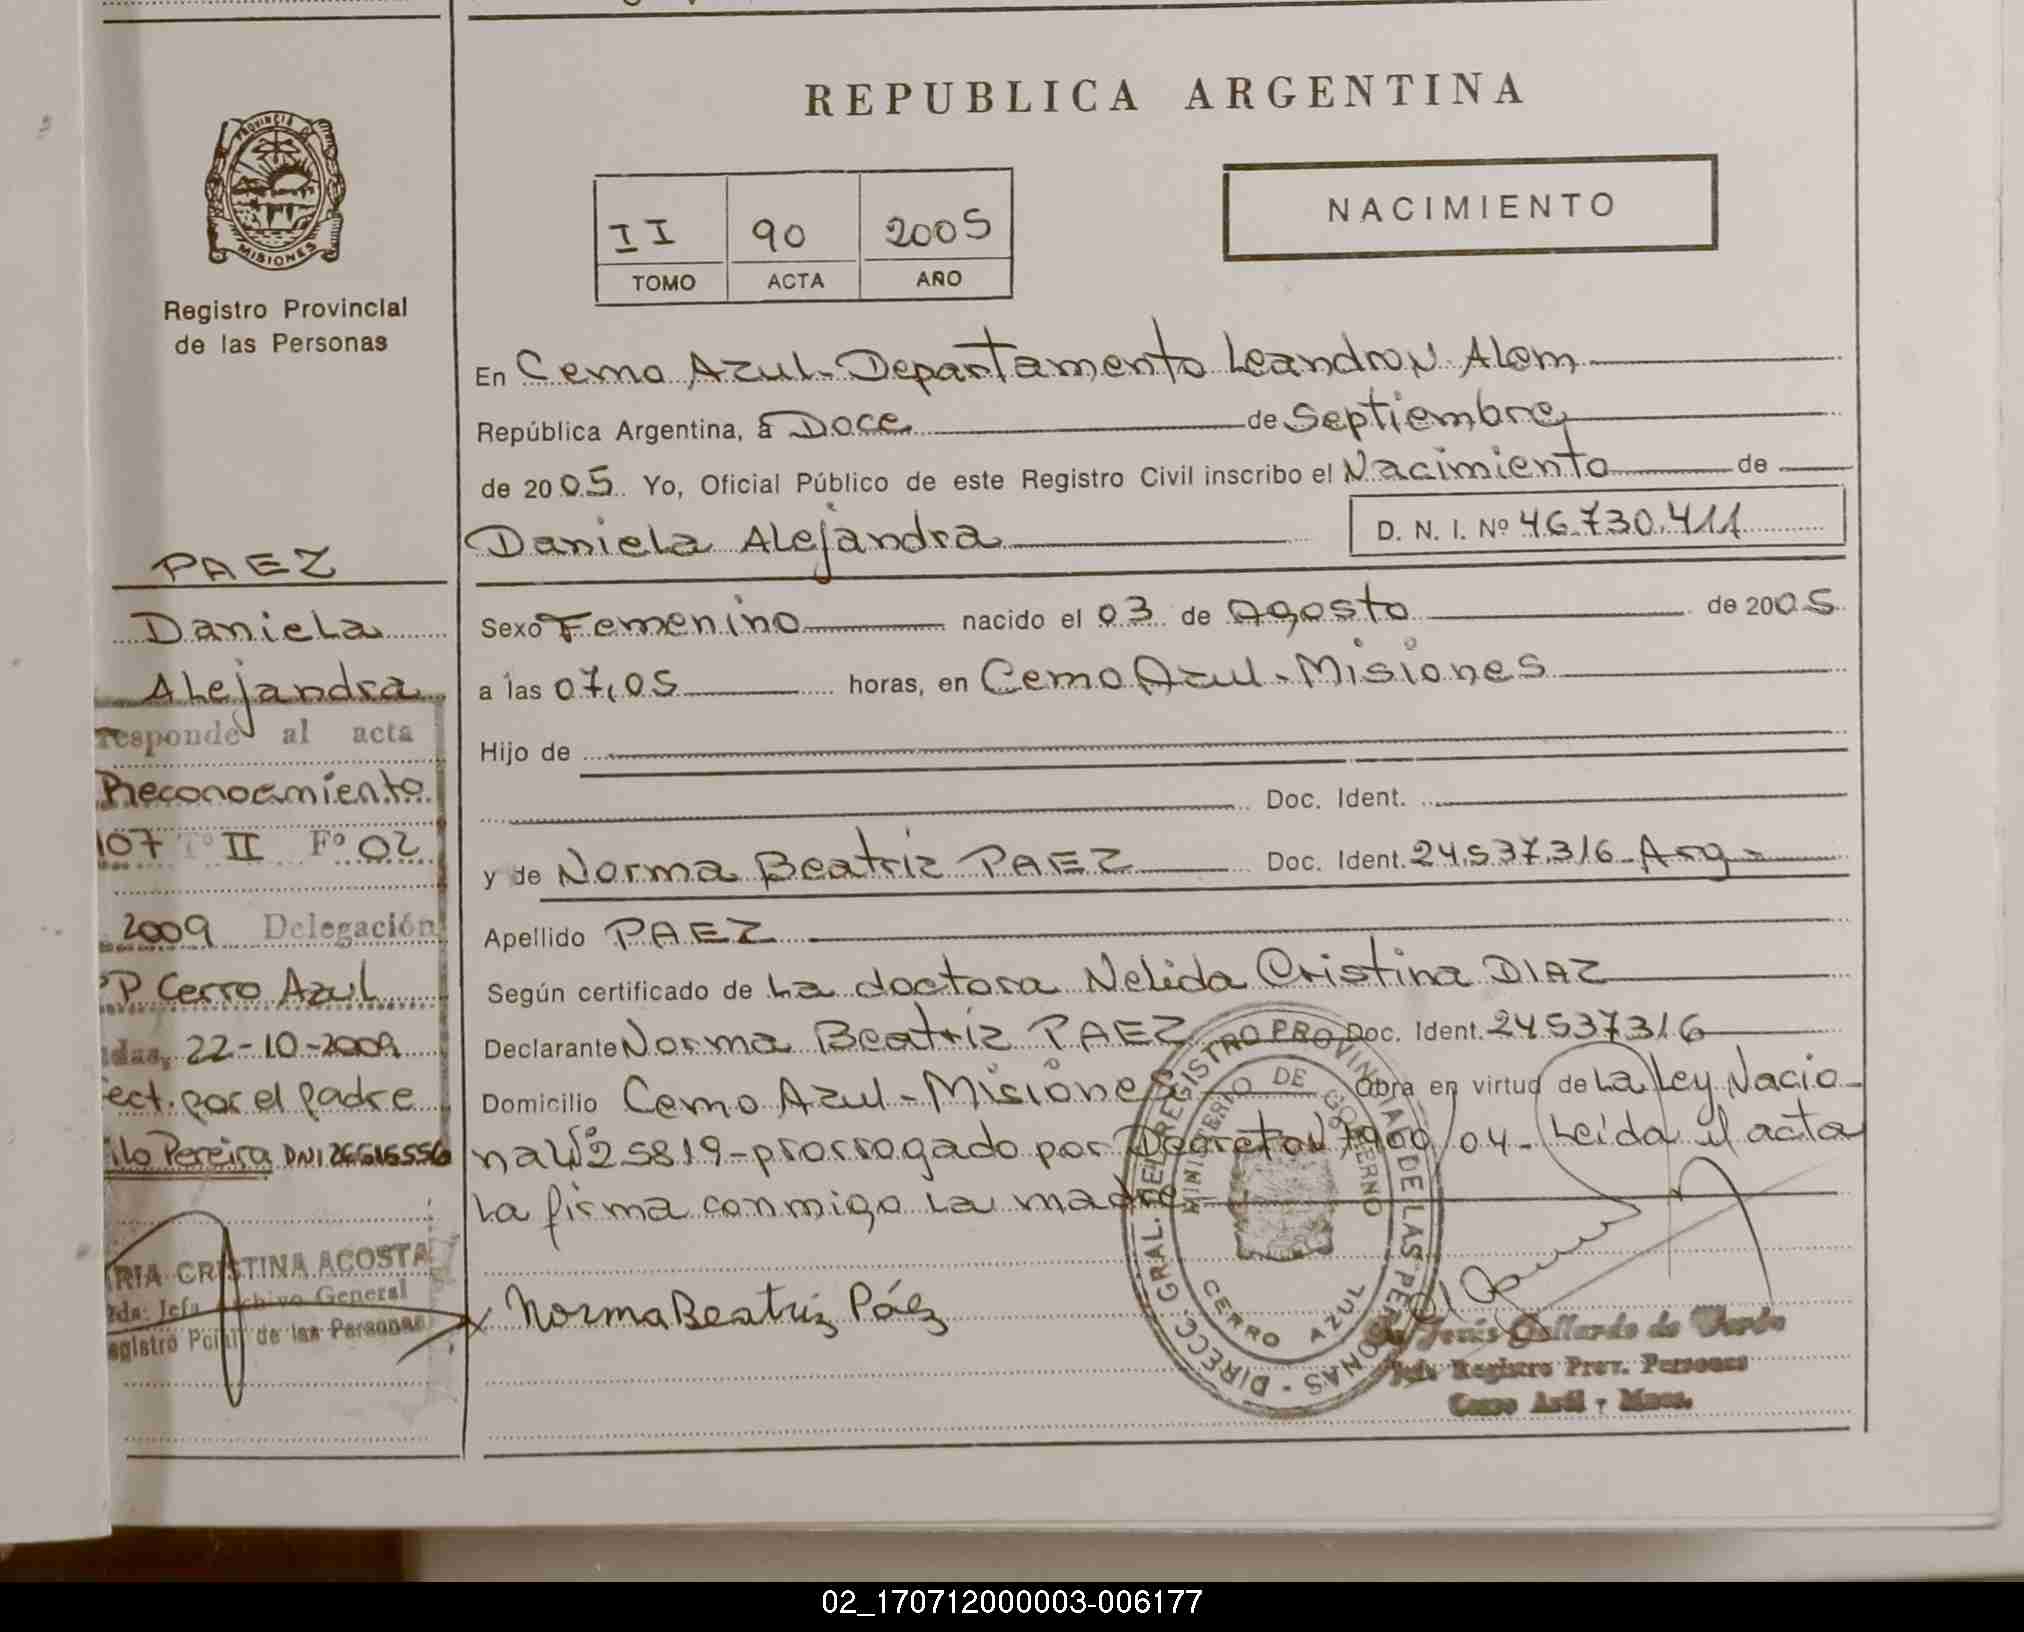 REPUBLICA ARGENTINA
PROVINCIA D
MISIONES
Registro Provincial
de las Personas
II 90 2005
TOMO ACTA AÑO
NACIMIENTO
En Cerro Azul-Departamento Leandro N. Alem
República Argentina, a Doce de Septiembre
de 2005. Yo, Oficial Público de este Registro Civil inscribo el Nacimiento de
Daniela Alejandra D. N. I. Nº 46.730.411
Sexo Femenino nacido el 03 de Agosto de 2005
a las 07,05 horas, en Cerro Azul-Misiones
Hijo de
Doc. Ident.
y de Norma Beatriz PAEZ Doc. Ident. 24.537.316-Arg-
Apellido PAEZ
Según certificado de La doctora Nelida Cristina DIAZ
Declarante Norma Beatriz PAEZ Doc. Ident. 24537316
Domicilio Cerro Azul-Misiones Obra en virtud de La Ley Nacio-
nal Nº 25819-prorrogado por Decreto Nº 1900/04- Leída el acta
La firma conmigo La madre
Norma Beatriz Páez
PAEZ
Daniela
Alejandra
responde al acta
Reconocimiento
107 Tº II Fº 02
2009 Delegación
P Cerro Azul
das, 22-10-2009
ect. por el padre
ilo Pereira DNI 26616556
RIA CRISTINA ACOSTA
Jefa Archivo General
egistro Pcial de las Personas
DIRECC. GRAL. DEL REGISTRO PROVINCIAL DE LAS PERSONAS -
MINISTERIO DE GOBIERNO
CERRO AZUL
Jesús Gallardo de
Jefe Registro Prov. Personas
Cerro Azul - Mnes.
02_170712000003-006177